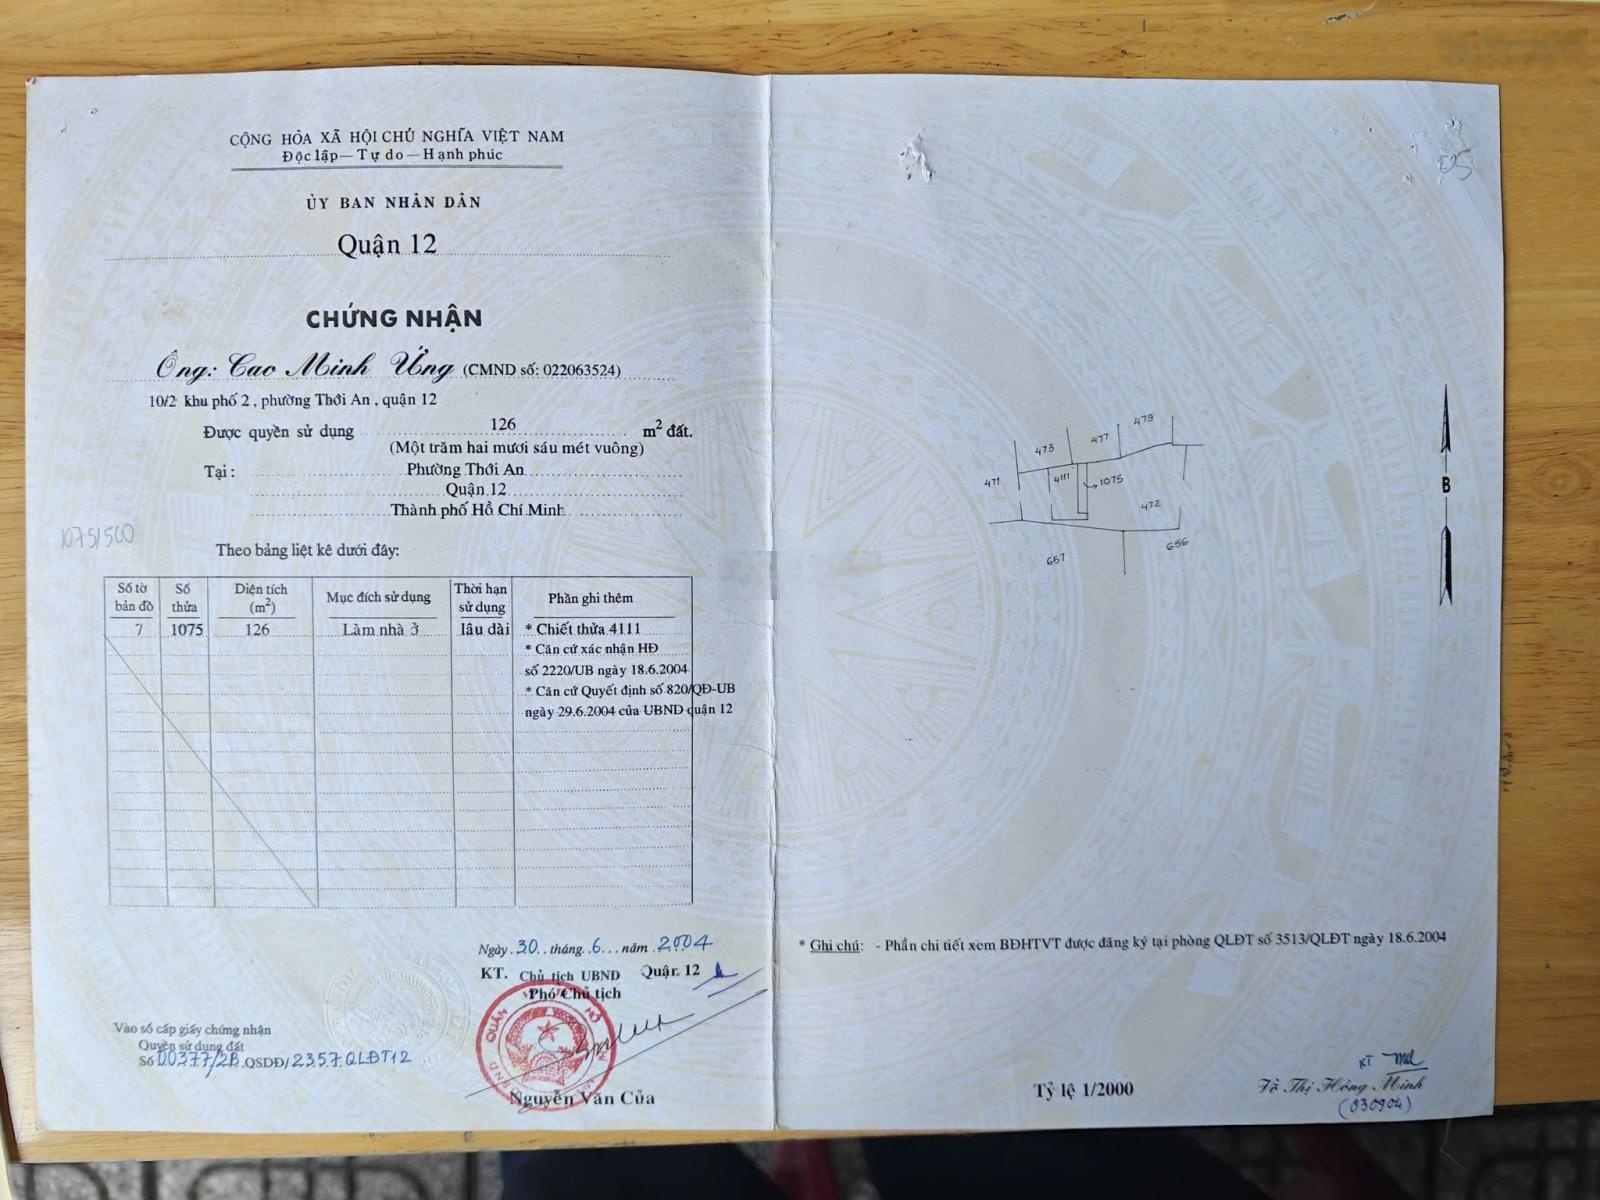 CỘNG HÒA XÃ HỘI CHỦ NGHĨA VIỆT NAM
Độc lập — Tự do — Hạnh phúc
ỦY BAN NHÂN DÂN
Quận 12
CHỨNG NHẬN
Ông: Cao Minh Ửng (CMND số: 022063524)
10/2 khu phố 2, phường Thới An, quận 12
Được quyền sử dụng 126 m² đất.
(Một trăm hai mươi sáu mét vuông)
Tại: Phường Thới An
Quận 12
Thành phố Hồ Chí Minh
1075/500
Theo bảng liệt kê dưới đây:
Số tờ bản đồ | Số thửa | Diện tích (m²) | Mục đích sử dụng | Thời hạn sử dụng | Phần ghi thêm
7 | 1075 | 126 | Làm nhà ở | lâu dài | * Chiết thửa 4111
* Căn cứ xác nhận HĐ
số 2220/UB ngày 18.6.2004
* Căn cứ Quyết định số 820/QĐ-UB
ngày 29.6.2004 của UBND quận 12
Ngày 30 tháng 6 năm 2004
KT. Chủ tịch UBND Quận 12
Phó Chủ tịch
Nguyễn Văn Của
Vào sổ cấp giấy chứng nhận
Quyền sử dụng đất
Số 00377/2B QSDĐ/2357.QLĐT12
473
477
479
471
4111
1075
472
657
656
B
* Ghi chú: - Phần chi tiết xem BĐHTVT được đăng ký tại phòng QLĐT số 3513/QLĐT ngày 18.6.2004
Tỷ lệ 1/2000
KT
Võ Thị Hồng Minh
(030904)